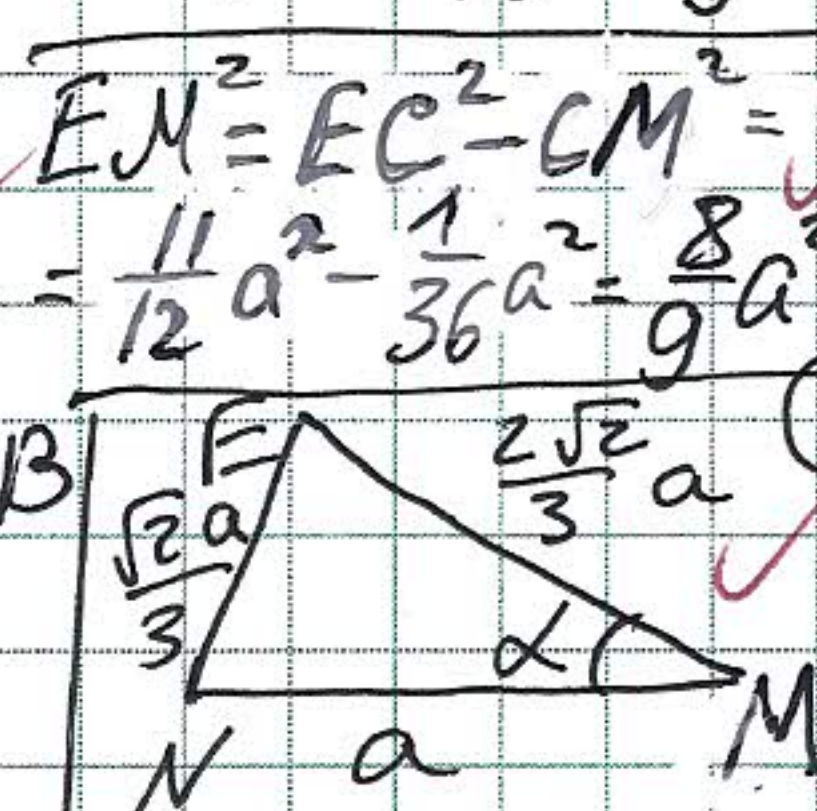 EM² = EC² - CM² =
= 11/12 a² - 1/36 a² = 8/9 a²
B
E
√2/3 a
2√2/3 a
α
N
a
M